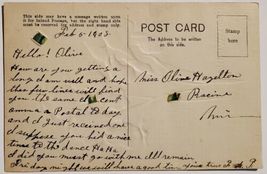 This side may have a message written upon it for Inland Postage, but the right hand side must be reserved for address and stamp only.
POST CARD
The Address to be written on this side.
Stamp here
Feb 5 1905.
Hello! Olive
How are you getting
along I am well and hope
these few lines will find
you the same
a Postal to day
and I Just received one
I suppose you had a nice
time to the dance Ha Ha
I did you must go with me
Friday night we will have a good time
Miss Olive Hazelton
Racine